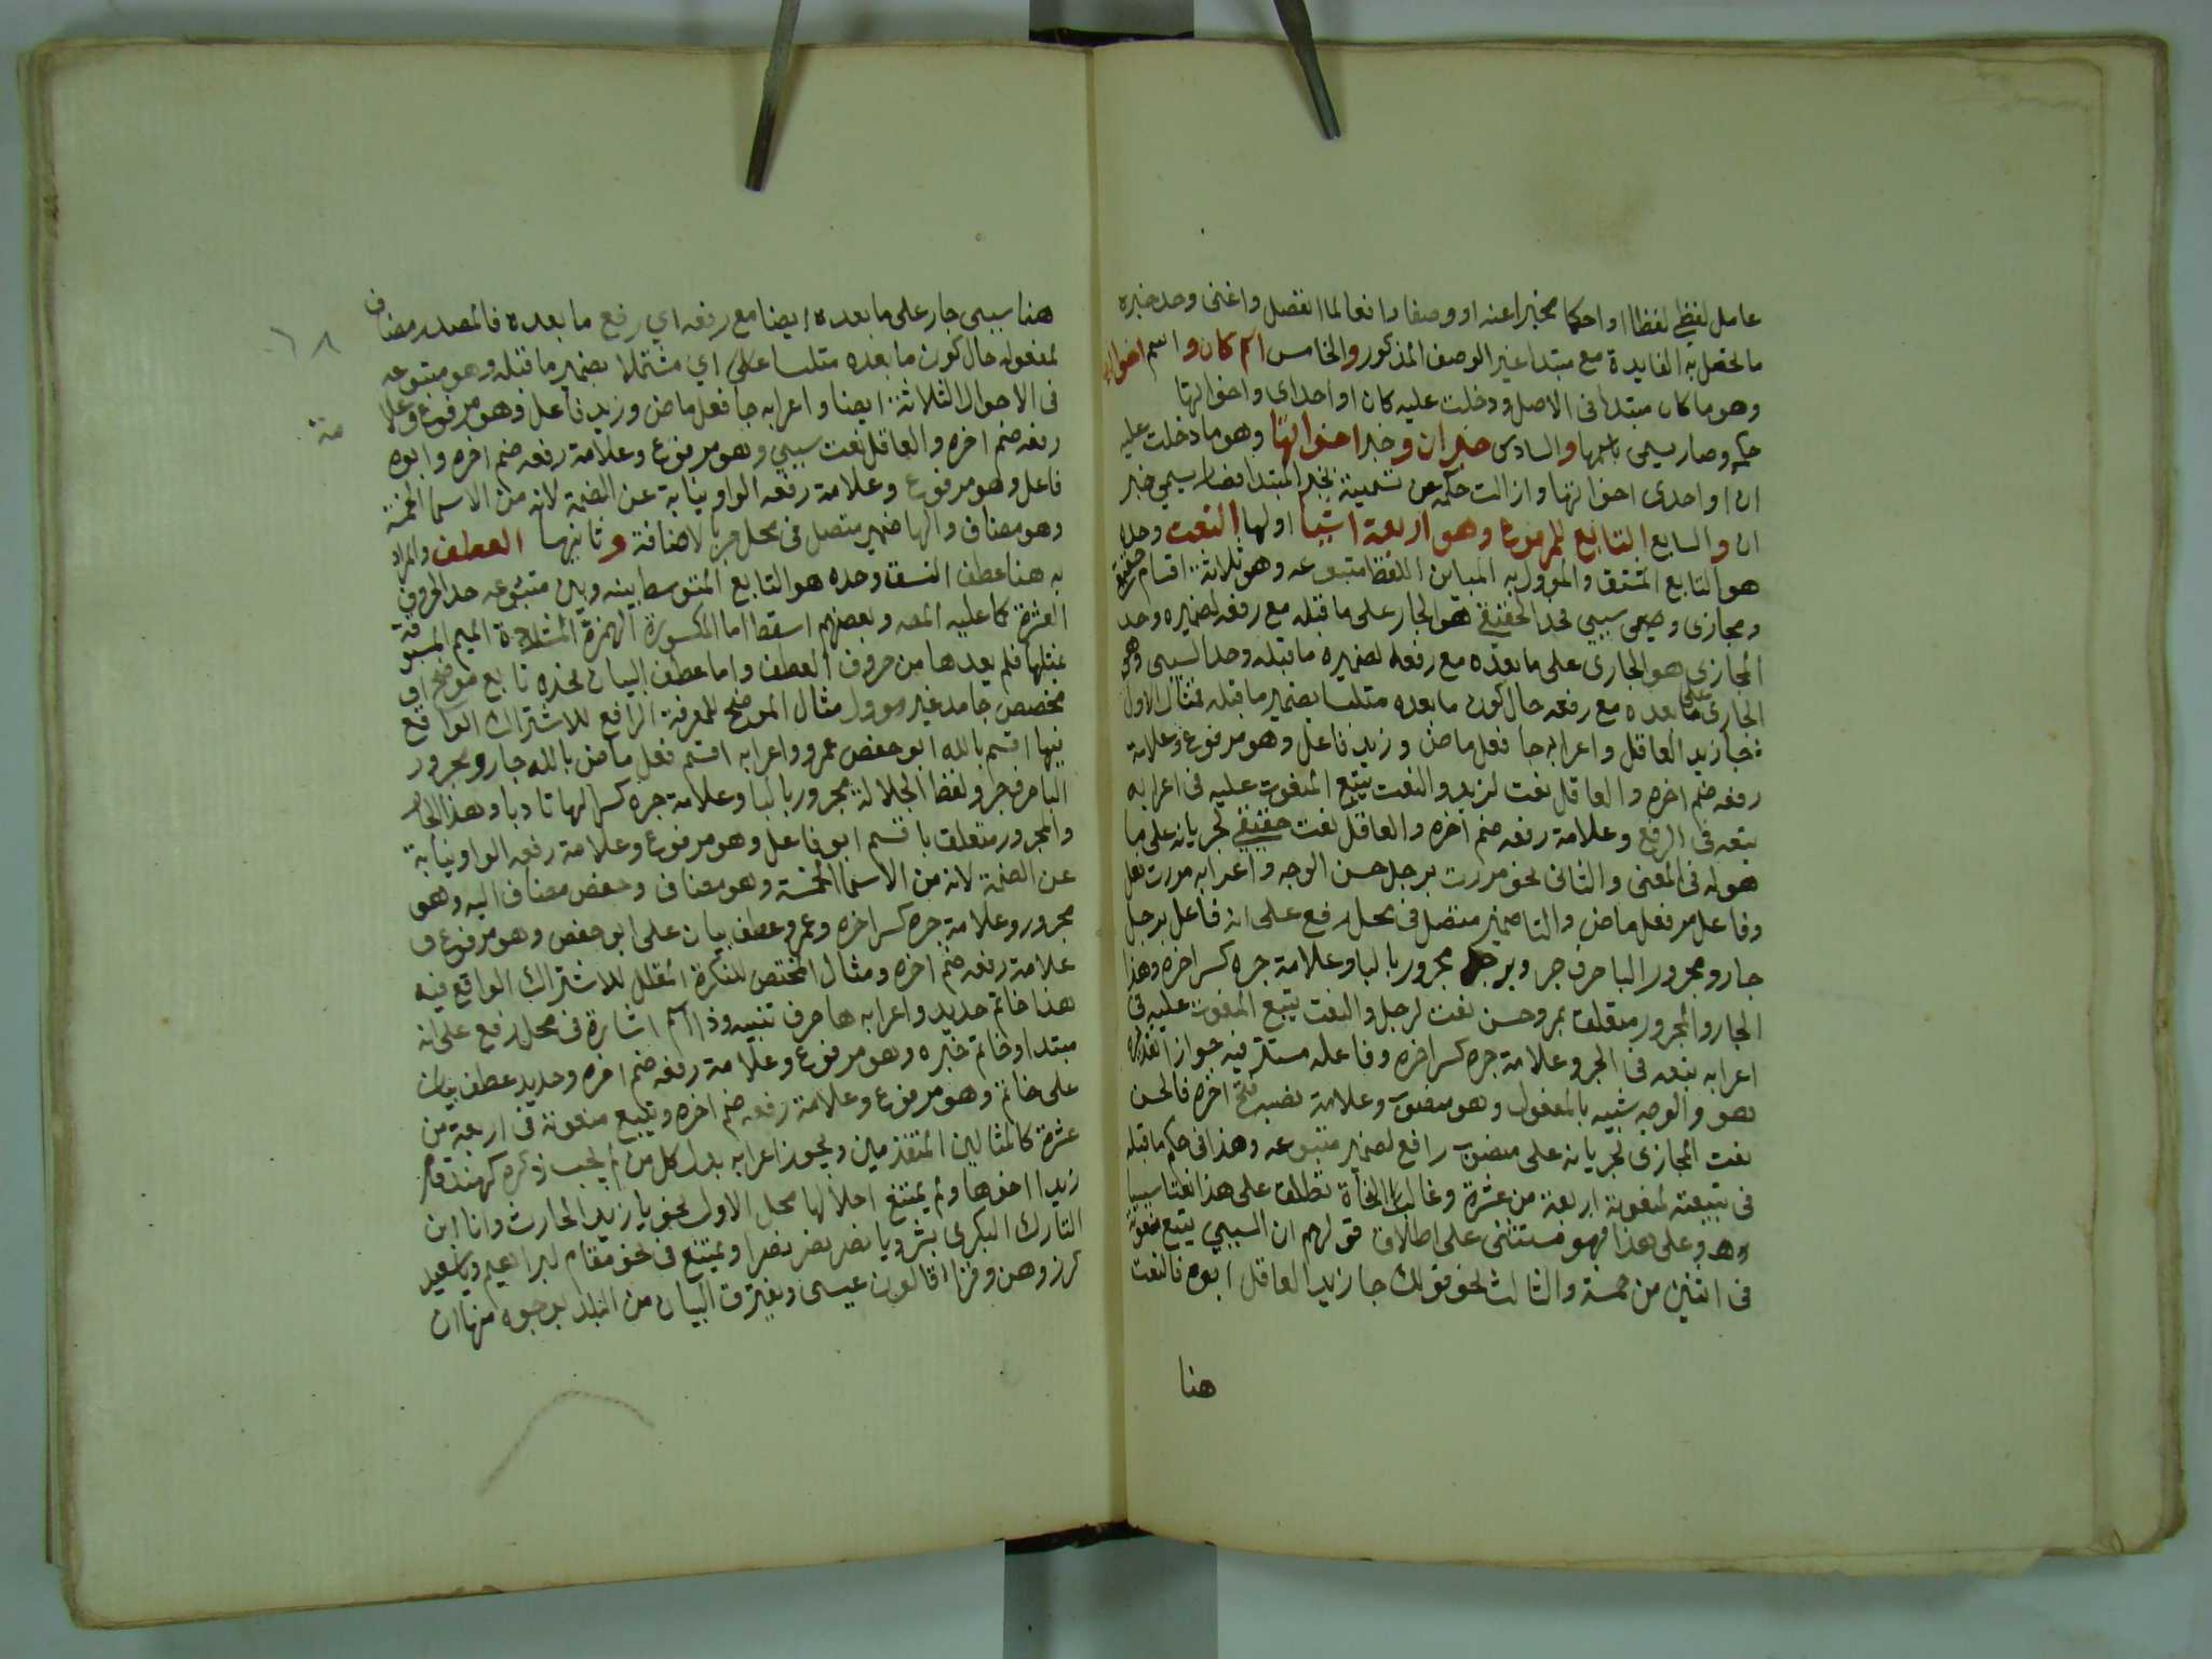 عامل لفظي لفظا او احكما مخبرا عنه او وصفا رافعا لما انفصل واغنى وحد خبره
ما تحصل به الفايدة مع مبتدا غير الوصف المذكور والخامس اسم كان واسم اخواتها
وهو ما كان مبتدا فى الاصل ودخلت عليه كان او احداى واخواتها
حكمه وصار يسمى باسمها والسادس خبر ان وخبر اخواتها وهو ما دخلت عليه
ان او احدى اخواتها وازالت حكمه عن تسميته بخبر المبتدا فصار يسمي خبر
ان والسابع التابع للمرفوع وهو اربعة اشيا اولها النعت وحده
هو التابع المشتق والموول به المباين للفظ متبوعه وهو ثلاثة اقسام حقيقي
ومجازى وسمى سببي فحد الحقيقي هو الجار على ما قبله مع رفعه لضميره وحد
المجازى هو الجارى على ما بعده مع رفعه لضميره ما قبله وحد السببى وهو
الجارى على ما بعده مع رفعه حال كون ما بعده متلبسا بضمير ما قبله فمثال الاول
جا زيد العاقل واعرابه جا فعل ماض وزيد فاعل وهو مرفوع وعلامة
رفعه ضم اخره والعاقل نعت لزيد والنعت يتبع المنعوت عليه فى اعرابه
تبعه فى الرفع وعلامة رفعه ضم اخره والعاقل نعت حقيقي لجريانه على ما
هو له فى المعنى والثانى نحو مررت برجل حسن الوجه واعرابه مررت فعل
وفاعل مر فعل ماض والتا ضمير متصل فى محل رفع على انه فاعل برجل
جار ومجرور البا حرف جر وبرجل مجرور بالبا وعلامة جره كسر اخره وهذا
الجار والمجرور متعلق بمر وحسن نعت لرجل والنعت يتبع المنعوت عليه فى
اعرابه تبعه فى الجر وعلامة جره كسر اخره وفاعله مستتر فيه جوازا تقديره
هو والوجه شبيه بالمفعول وهو منصوب وعلامة نصبه فتح اخره فالحسن
نعت المجازى لجريانه على منصوب رافع لضمير متبوعه وهذا فى حكم ما قبله
فى تبيعته لمنعوته اربعة من عشرة وغالب النحاة تطلق على هذا نعتا سببيا
وهو وعلى هذا فهو مستثنى على اطلاق قولهم ان السببي يتبع منعوته
فى اثنين من خمسة والثالث نحو قولك جا زيد العاقل ابوه فالنعت
هنا
هنا سببى جار على ما بعده ايضا مع رفعه اي رفع ما بعده فالمصدر مضاف
لمفعوله حال كون ما بعده متلبسا على اي مشتملا بضمير ما قبله وهو متبوعه
فى الاحوال الثلاثة ايضا واعرابه جا فعل ماض وزيد فاعل وهو مرفوع وعلا
مة
رفعه ضم اخره والعاقل نعت سببي وهو مرفوع وعلامة رفعه ضم اخره وابوه
فاعل وهو مرفوع وعلامة رفعه الواو نيابة عن الضمة لانه من الاسما الخمسة
وهو مضاف والها ضمير متصل فى محل جر بالاضافة وثانيها العطف والمراد
به هنا عطف النسق وحده هو التابع المتوسط بينه وبين متبوعه حد الحروف
العشرة كما عليه المصـ وبعضهم اسقط اما المكسورة الهمزة المشددة الميم المسبوقة
بمثلها فلم يعدها من حروف العطف واما عطف البيان فحده تابع موضح او
مخصص جامد غير موول مثال الموضح للمعرفة الرافع للاشتراك الواقع
فيها اقسم بالله ابو حفص عمرو واعرابه اقسم فعل ماض بالله جار ومجرور
البا حرف جر ولفظ الجلالة مجرور بالبا وعلامة جره كسر الها تادبا وهذا الجار
والمجرور متعلق باقسم ابو فاعل وهو مرفوع وعلامة رفعه الواو نيابة
عن الضمة لانه من الاسما الخمسة وهو مضاف وحفص مضاف اليه وهو
مجرور وعلامة جره كسر اخره وعمرو عطف بيان على ابو حفص وهو مرفوع و
علامة رفعه ضم اخره ومثال المختص للنكرة المقلل للاشتراك الواقع فيه
هذا خاتم حديد واعرابه ها حرف تنبيه وذا اسم اشارة فى محل رفع على انه
مبتدا وخاتم خبره وهو مرفوع وعلامة رفعه ضم اخره وحديد عطف بيان
على خاتم وهو مرفوع وعلامة رفعه ضم اخره ويتبع منعوته فى اربعة من
عشرة كالمثالين المتقدمين ويجوز اعرابه بدل كل من لم يجب ذكره كهند قام
زيدا اخوها ولم يمتنع احلالها محل الاول نحو يا زيد الحارث وانا ابن
التارك البكرى بشر ويا نصر نصر نصرا ويمتنع فى نحو مقام ابراهيم ويا سعيد
كرز وهن وقزا قالون عيسى ويفترق البيان من البدل بوجوه منها ان